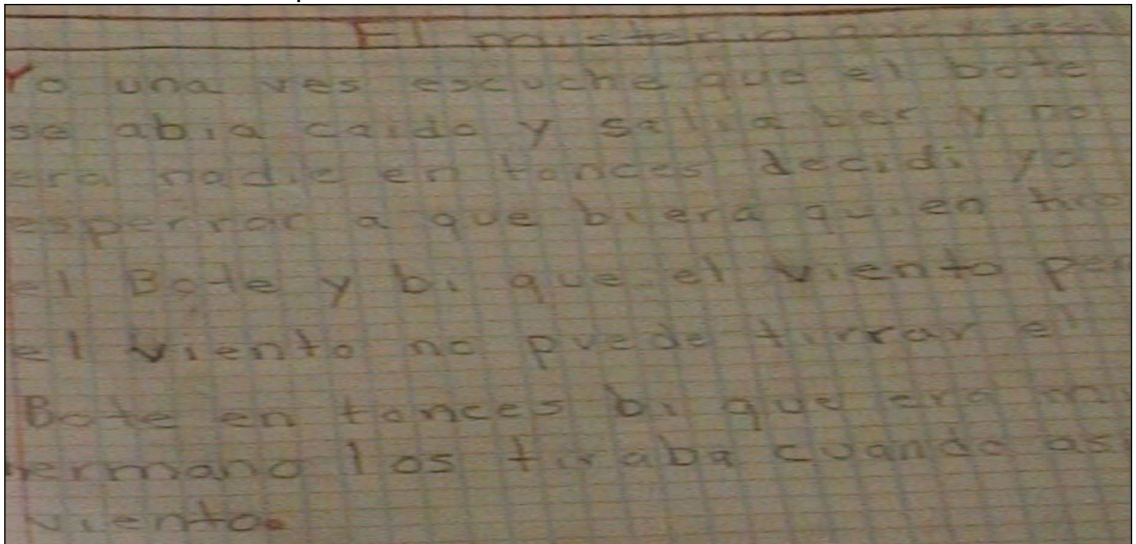 El misterio
Yo una ves escuche que el bote
se abia caido y sali a ber y no
era nadie en tonces decidi yo
esperrar a que biera quien tiro
el Bote y bi que el viento per
el viento no puede tirrar el
Bote en tonces bi que era mi
hermano los tiraba cuando asi
viento.